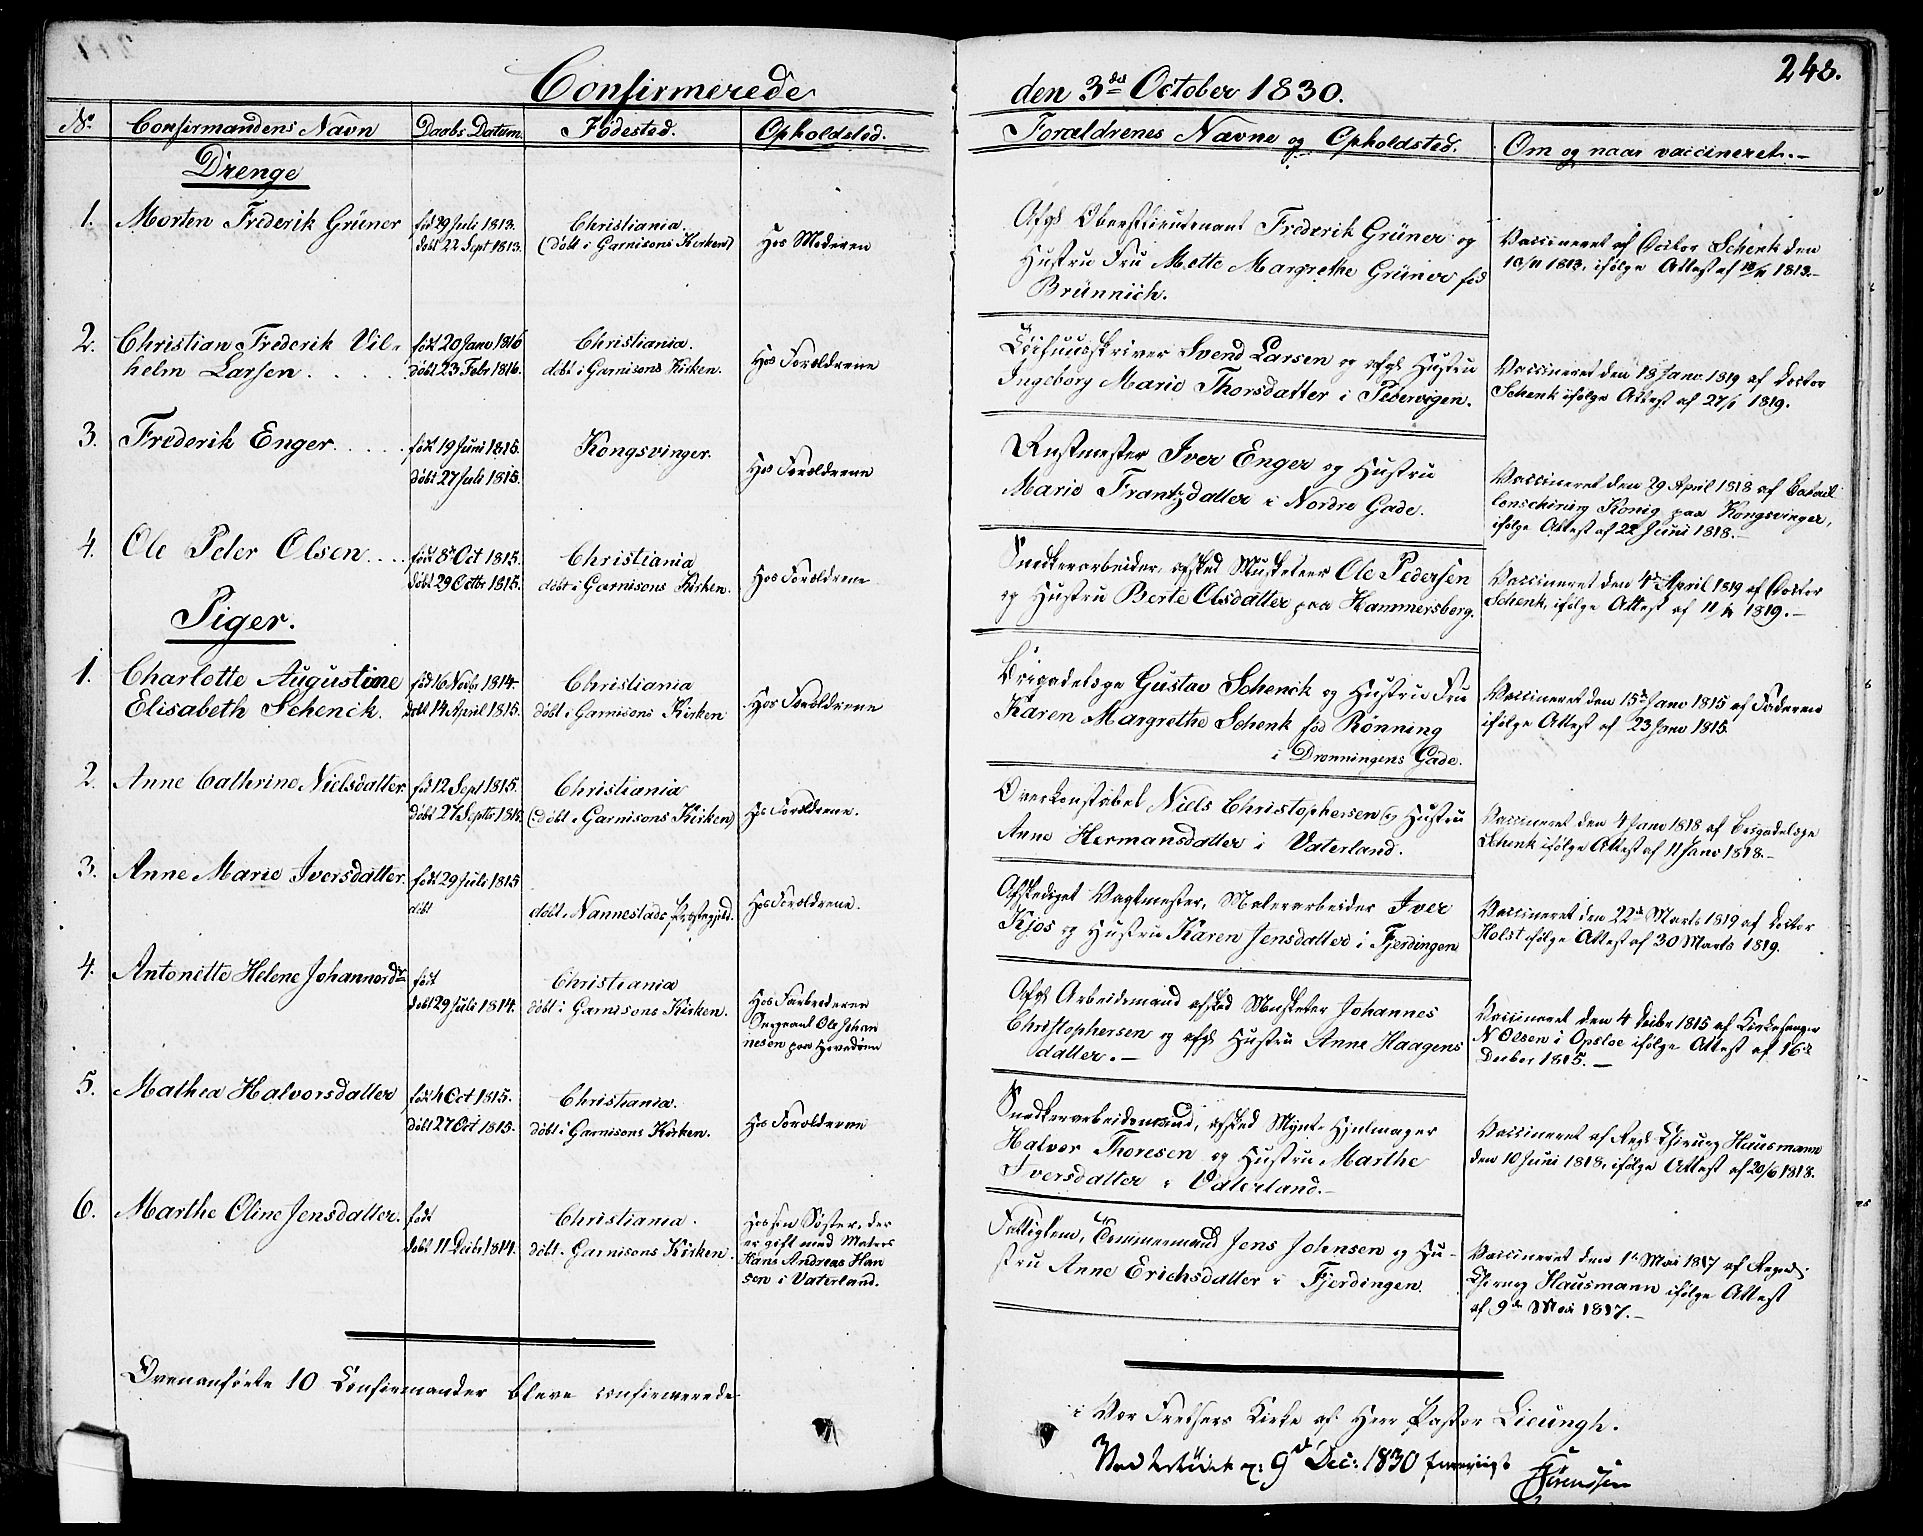 Confirmerede den 3die October 1830.
248.
No. Confirmandens Navn Daabs Datum. Fødested. Opholdsted. Forældrenes Navne og Opholdsted. Om og naar vaccineret.-
Drenge
1. Morten Frederik Grüner
fød 29 Juli 1813.
døbt 22 Sept 1813.
Christiania.
(døbt i Garnisons Kirken)
Hos Moderen
Afgl Oberstlieutenant Frederik Grüner og
Hustru Fru Mette Margrethe Grüner fød
Brünnich.
Vaccineret af Doctor Schenk den
10/11 1813, ifølge Attest af 1813.-
2. Christian Frederik Vil-
helm Larsen . . . .
født 20 Janv 1816
døbt 23 Febr 1816.
Christiania.
døbt i Garnisons Kirken.
Hos Forældrene
Svend Larsen og afgl Hustru
Ingeborg Marie Thorsdatter i Pebervigen.
Vaccineret den 18 Janv 1819 af Doctor
Schenk ifølge Attest af 27/1 1819.
3. Frederik Enger. . . . .
født 19 Juni 1815.
døbt 27 Juli 1815.
Kongsvinger.
Hos Forældrene
Rustmester Iver Enger og Hustru
Marie Frantzdatter i Nordre Gade.
Vaccineret den 29 April 1818 af Batail-
lonschirurg Konig paa Kongsvinger,
ifølge Attest af 22 Juni 1818.-
4. Ole Peter Olsen. . . .
født 8 Oct 1815.
døbt 29 Octbr 1815.
Christiania
døbt i Garnisons Kirken.
Hos Forældrene
Snedkerarbeider, afsked Musketeer Ole Pedersen
og Hustru Berte Olsdatter paa Hammersborg.
Vaccineret den 4de April 1819 af Doctor
Schenk, ifølge Attest af 11/4 1819.-
Piger.
1. Charlotte Augustine
Elisabeth Schenck.
fød 16 Novbr 1814.
døbt 14 April 1815.
Christiania
døbt i Garnisons Kirken
Hos Forældrene
Brigadelæge Gustav Schenck og Hustru Fru
Karen Margrethe Schenk fød Rønning
i Dronningens Gade.
Vaccineret den 15de Janv 1815 af Faderen
ifølge Attest af 23 Janv 1815.
2. Anne Cathrine Nielsdatter
fød 12 Sept 1815.
døbt 27 Septbr 1815.
Christiania
(døbt i Garnisons Kirken)
Hos Forældrene.
Overkonstabel Niels Christophersen og Hustru
Anne Hermansdatter i Vaterland.
Vaccineret den 4 Janv 1818 af Brigadelæge
Schenk ifølge Attest af 11 Janv 1818.-
3. Anne Marie Iversdatter.
født 29 Juli 1815
døbt
døbt i Nannestads Præstegjeld.
Hos Forældrene.
Afskediget Vagtmester, Malerarbeider Iver
Kjos og Hustru Karen Jensdatter i Fjerdingen
Vaccineret den 22de Marts 1819 af Doctor
Holst ifølge Attest af 30 Marts 1819.
4. Antonette Helene Johannesdr
født
døbt 29 Juli 1814.
Christiania
døbt i Garnisons Kirken.
Hos Farbroderen
Sergeant Ole Johan
nesen paa Hovedøen
Afgl Arbeidsmand afsked Musketer Johannes
Christophersen og afgl Hustru Anne Haagens
datter.-
Vaccineret den 4 Decbr 1815 af Kirkesanger
N Olsen i Opsloe ifølge Attest af 16de
Decbr 1815.-
5. Mathea Halvorsdatter
født 4 Oct 1815.
døbt 27 Oct 1815.
Christiania.
døbt i Garnisons Kirken.
Hos Forældrene
Snedkerarbeidsmand, afsked Hjulmager
Halvor Thoresen og Hustru Marthe
Iversdatter i Vaterland.-
Vaccineret af Regts Chirurg Hausmann
den 10 Juni 1818, ifølge Attest af 20/6 1818.
6. Marthe Oline Jensdatter.
født
døbt 11 Decbr 1814.
Christiania.
døbt i Garnisons Kirken.
Hos sin Søster, der
er gift med Matros
Hans Andreas Han
sen i Vaterland.
Fattiglem, Tømmermand Jens Johnsen og Hu-
stru Anne Erichsdatter i Fjerdingen.
Vaccineret den 1de Mai 1817 af Regts
Chirurg Hausmann ifølge Attest
af 9de Mai 1817.-
Ovenanførte 10 Confirmander bleve confirmerede
i Vor Frelsers Kirke af Herr Pastor Lieungh.
9de Dec: 1830
Sørenssen